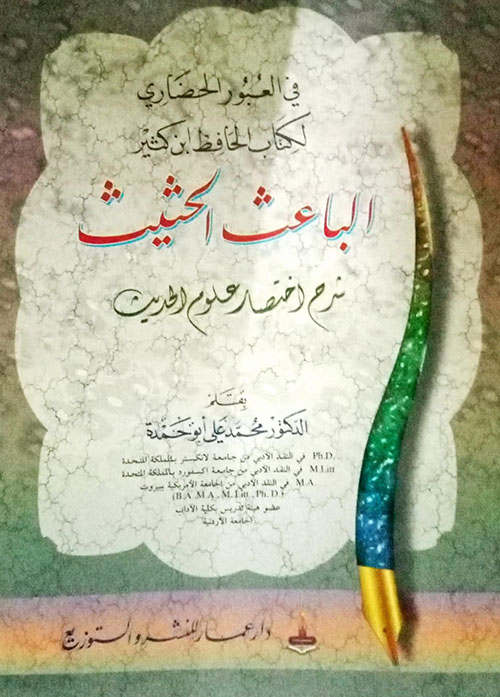 في العبور الحضاري
لكتاب الحافظ ابن كثير
الباعث الحثيث
شرح اختصار علوم الحديث
بقلم
الدكتور محمد علي أبو حمدة
Ph.D. في النقد الأدبي من جامعة لانكستر بالمملكة المتحدة
M.Litt في النقد الأدبي من جامعة اكسفورد بالمملكة المتحدة
M.A في النقد الأدبي من الجامعة الأمريكية ببيروت
(B.A, M.A, M.Litt, Ph.D.)
عضو هيئة تدريس بكلية الآداب
الجامعة الأردنية
دار عمار للنشر والتوزيع